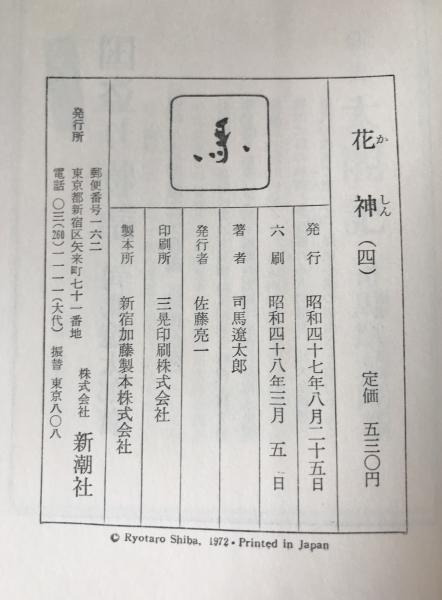 花神（四）
かしん
定価 五三〇円
発行 昭和四十七年八月二十五日
六刷 昭和四十八年三月 五 日
著者 司馬遼太郎
発行者 佐藤亮一
印刷所 三晃印刷株式会社
製本所 新宿加藤製本株式会社
馬
発行所
郵便番号一六二
東京都新宿区矢来町七十一番地
電話 〇三(260)一一一一(大代) 振替 東京八〇八
株式会社 新潮社
© Ryotaro Shiba, 1972・Printed in Japan